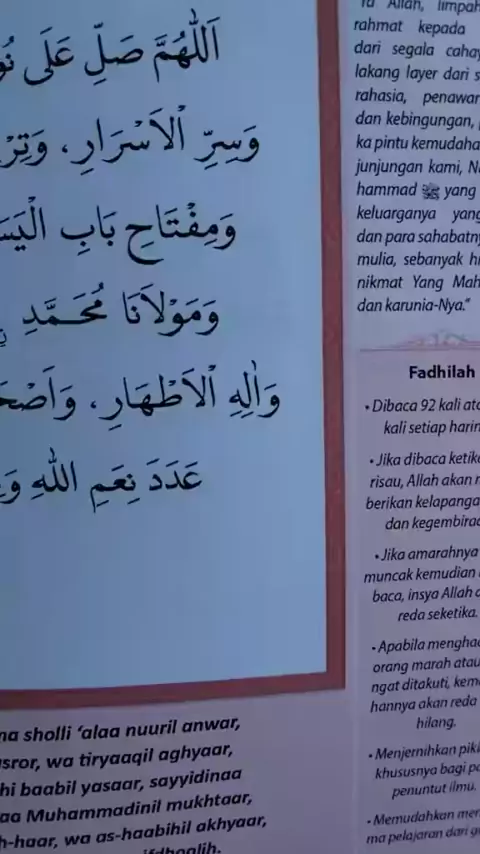 اَللّٰهُمَّ صَلِّ عَلَى
وَسِرِّ الْاَسْرَارِ، وَتِرْ
وَمِفْتَاحِ بَابِ الْيَسَ
وَمَوْلَانَا مُحَمَّدِ
وَاٰلِهِ الْاَطْهَارِ، وَاَصْحَ
عَدَدَ نِعَمِ اللّٰهِ وَ
na sholli 'alaa nuuril anwar,
sror, wa tiryaaqil aghyaar,
hi baabil yasaar, sayyidinaa
aa Muhammadinil mukhtaar,
h-haar, wa as-haabihil akhyaar,
"Ya Allah, limpah
rahmat kepada
dari segala cahay
lakang layer dari s
rahasia, penawar
dan kebingungan,
ka pintu kemudaha
junjungan kami, N
hammad ﷺ yang
keluarganya yang
dan para sahabatny
mulia, sebanyak hi
nikmat Yang Mah
dan karunia-Nya."
Fadhilah
• Dibaca 92 kali ata
kali setiap harin
• Jika dibaca ketika
risau, Allah akan m
berikan kelapanga
dan kegembiraa
• Jika amarahnya
muncak kemudian
baca, insya Allah a
reda seketika.
• Apabila menghad
orang marah atau
ngat ditakuti, kem
hannya akan reda
hilang.
• Menjernihkan piki
khususnya bagi pa
penuntut ilmu.
• Memudahkan men
ma pelajaran dari gu